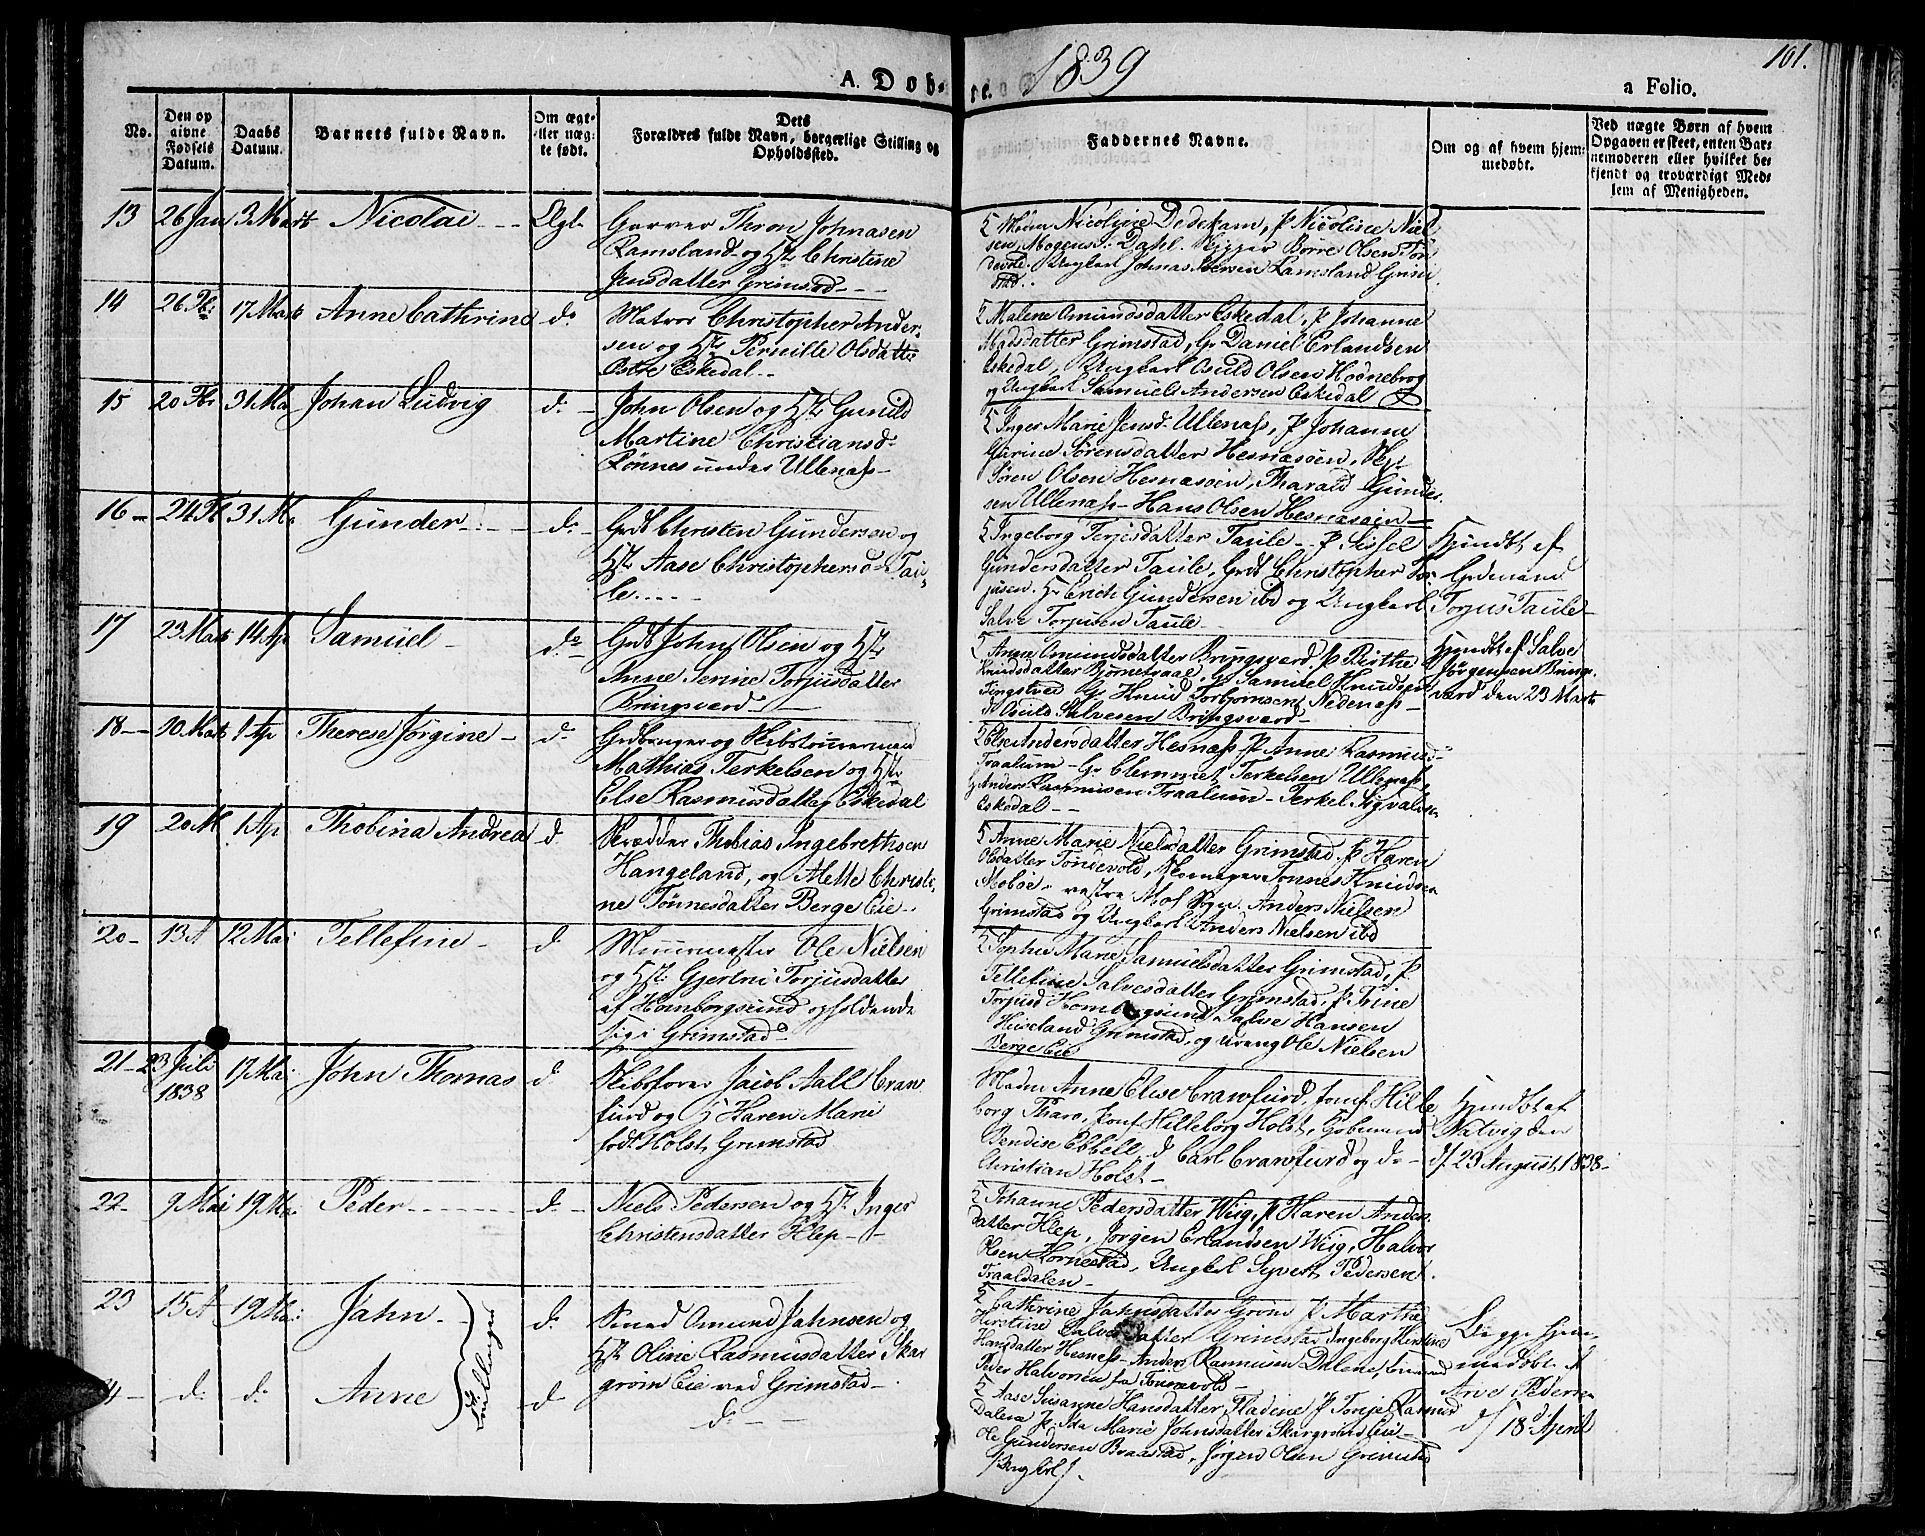 1839
101.
A. Døb-
te.
a Folio.
No.
Den op
givne
Fødsels
Datum.
Daabs
Datum.
Barnets fulde Navn.
Om ægt-
eller uæg-
te født.
Dets
Forældres fulde Navn, borgerlige Stilling og
Opholdssted.
Faddernes Navne.
Om og af hvem hjem-
medøbt.
Ved uægte Børn af hvem
Opgaven er skeet, enten Bar-
nemoderen eller hvilket be-
kjendt og troværdigt Med-
lem af Menigheden.
13 26 Jan 3 Marts Nicolai Ægt.
Garver Thron Johnasen
Ramsland og Hst Christine
Jensdatter Grimstad
Mdm Nicoline Dedekam, P Nicoline Niel
sen, Mogens Dahl. Skipper Børre Olsen Tøn
devold. Ungkarl Johnas Iversen Ramsland Grim
stad
14 17 Marts Anne Cathrine do
Matros Christopher Ander
sen og Hst Pernille Olsdatter
Østre Eskedal
Malene Omundsdatter Eskedal, P Johanne
Madsdatter Grimstad, G Daniel Erlandsen
Eskedal, Ungkarl Osuld Olsen Hodnebrog
og Ungkarl Samuel Andersen Eskedal
15 31 Ma Johan Ludvig do
John Olsen og Hst Gunild
Martine Christiansd
Rønnes under Ullenæss
Inger Marie Jensd Ullenæss, P Johanne
Gurine Sørensdatter Hesnæsøen,
Søren Olsen Hesnæsøen, Tharald Gunder
sen Ullenæss Hans Olsen Hesnæsøen
16 24 31 M Gunder do
Grdt Christen Gundersen og
Hst Aase Christophersd Tau
le
Ingeborg Terjesdatter Taule P Sissel
Gundersdatter Taule, Grdt Christopher Tor
jusen. Erich Gundersen ibd og Ungkarl
Salve Torjusen Taule
Hjmdbt af
Grdmand
Torjus Taule
17 23 Marts 14 Ap Samuel do
Grdt John Olsen og Hst
Anne Serine Torjusdatter
Bringsværd
Anne Omundsdatter Bringsværd, P Birthe
Knudsdatter Bjørnetvaal, G Samuel Knudsen
Tingstved G Knud Torbjørnsen Nedenæss
Osuld Salvesen Bringsværd
Hjmdbt af Salve
Jørgensen Brings
værd den 23 Marts
18 10 Marts 1 Ap Therese Jørgine do
Grdbruger og Skibstømmermand
Mathias Terkelsen og Hst
Else Rasmusdatter Eskedal
Else Andersdatter Hesnæss, P Anne Rasmusd
Traalum G Clemmet Terkelsen Ullenæss
Anders Rasmusen Traalum Terkel Sigvalsen
Eskedal
19 20 M 1 Ap Thobina Andrea d
Skrædder Thobias Ingebrethsen
Hangeland, og Mette Christi
ne Tønnesdatter Berge Eie
Anne Marie Nielsdatter Grimstad, P Karen
Olsdatter Tøndevold, Skomager Tønnes Knudsen
vestre Mol Anders Nielsen
Grimstad og Ungkarl Anders Nielsen ibd
20 13 A 12 Mai Tellefine d
Muurmester Ole Nielsen
og Hst: Gjertru Torjusdatter
af Homborgsund opholdende
sig i Grimstad
Sophie Marie Samuelsdatter Grimstad, P
Tellefine Salvesdatter Grimstad, P Trine
Torjusd Homborgsund, Salve Hansen
Huseland Grimstad, og Dreng Ole Nielsen
Berge Eie
21 23 Juli
1838
17 Mai John Thomas d
Skibsfører Jacob Aall Craw
furd og H Karen Marie
født Holst, Grimstad
Madm Anne Elise Crawfurd, Jomf Hille
borg Tharo, Jomf Hilleborg Holst, Kjøbmand
Bendise Ebbell, d Carl Crawfurd og do
Christian Holst
Hjmdbt af
Natvig den
23 August 1838
22 9 Mai 19 Mai Peder d
Niels Pedersen og Hst Inger
Christensdatter Klep
Johanne Pedersdatter Wiig, P Karen Anders
datter Klep, Jørgen Erlandsen Wiig, Halvor
Olsen Hornestad, Ungkrl Syvert Pedersen
Traaldalen
23 15 A 19 Mai Jahn d.
Tvillinger
Omund Jahnsen og
Hst Oline Rasmusdatter Skar
grøm Eie ved Grimstad
Cathrine Jahnsdatter Grøm P Marthe
Kirstine Salvesdatter Grimstad Ingeborg Kirstine
Hansdatter Hesnæss Anders Rasmusen Dalene,
Peder Halvorsen fra Tønnevold
Begge hjem
medøbt af
Arve Pedersen
d 18 April
d. d. Anne d
d
Aase Susanne Hansdatter, P Torjer Rasmus
Dalene Marie Johnsdatter Skargrøm Eie
Ole Gundersen Braastad, Jørgen Olsen Grimstad
(Ungkrl)